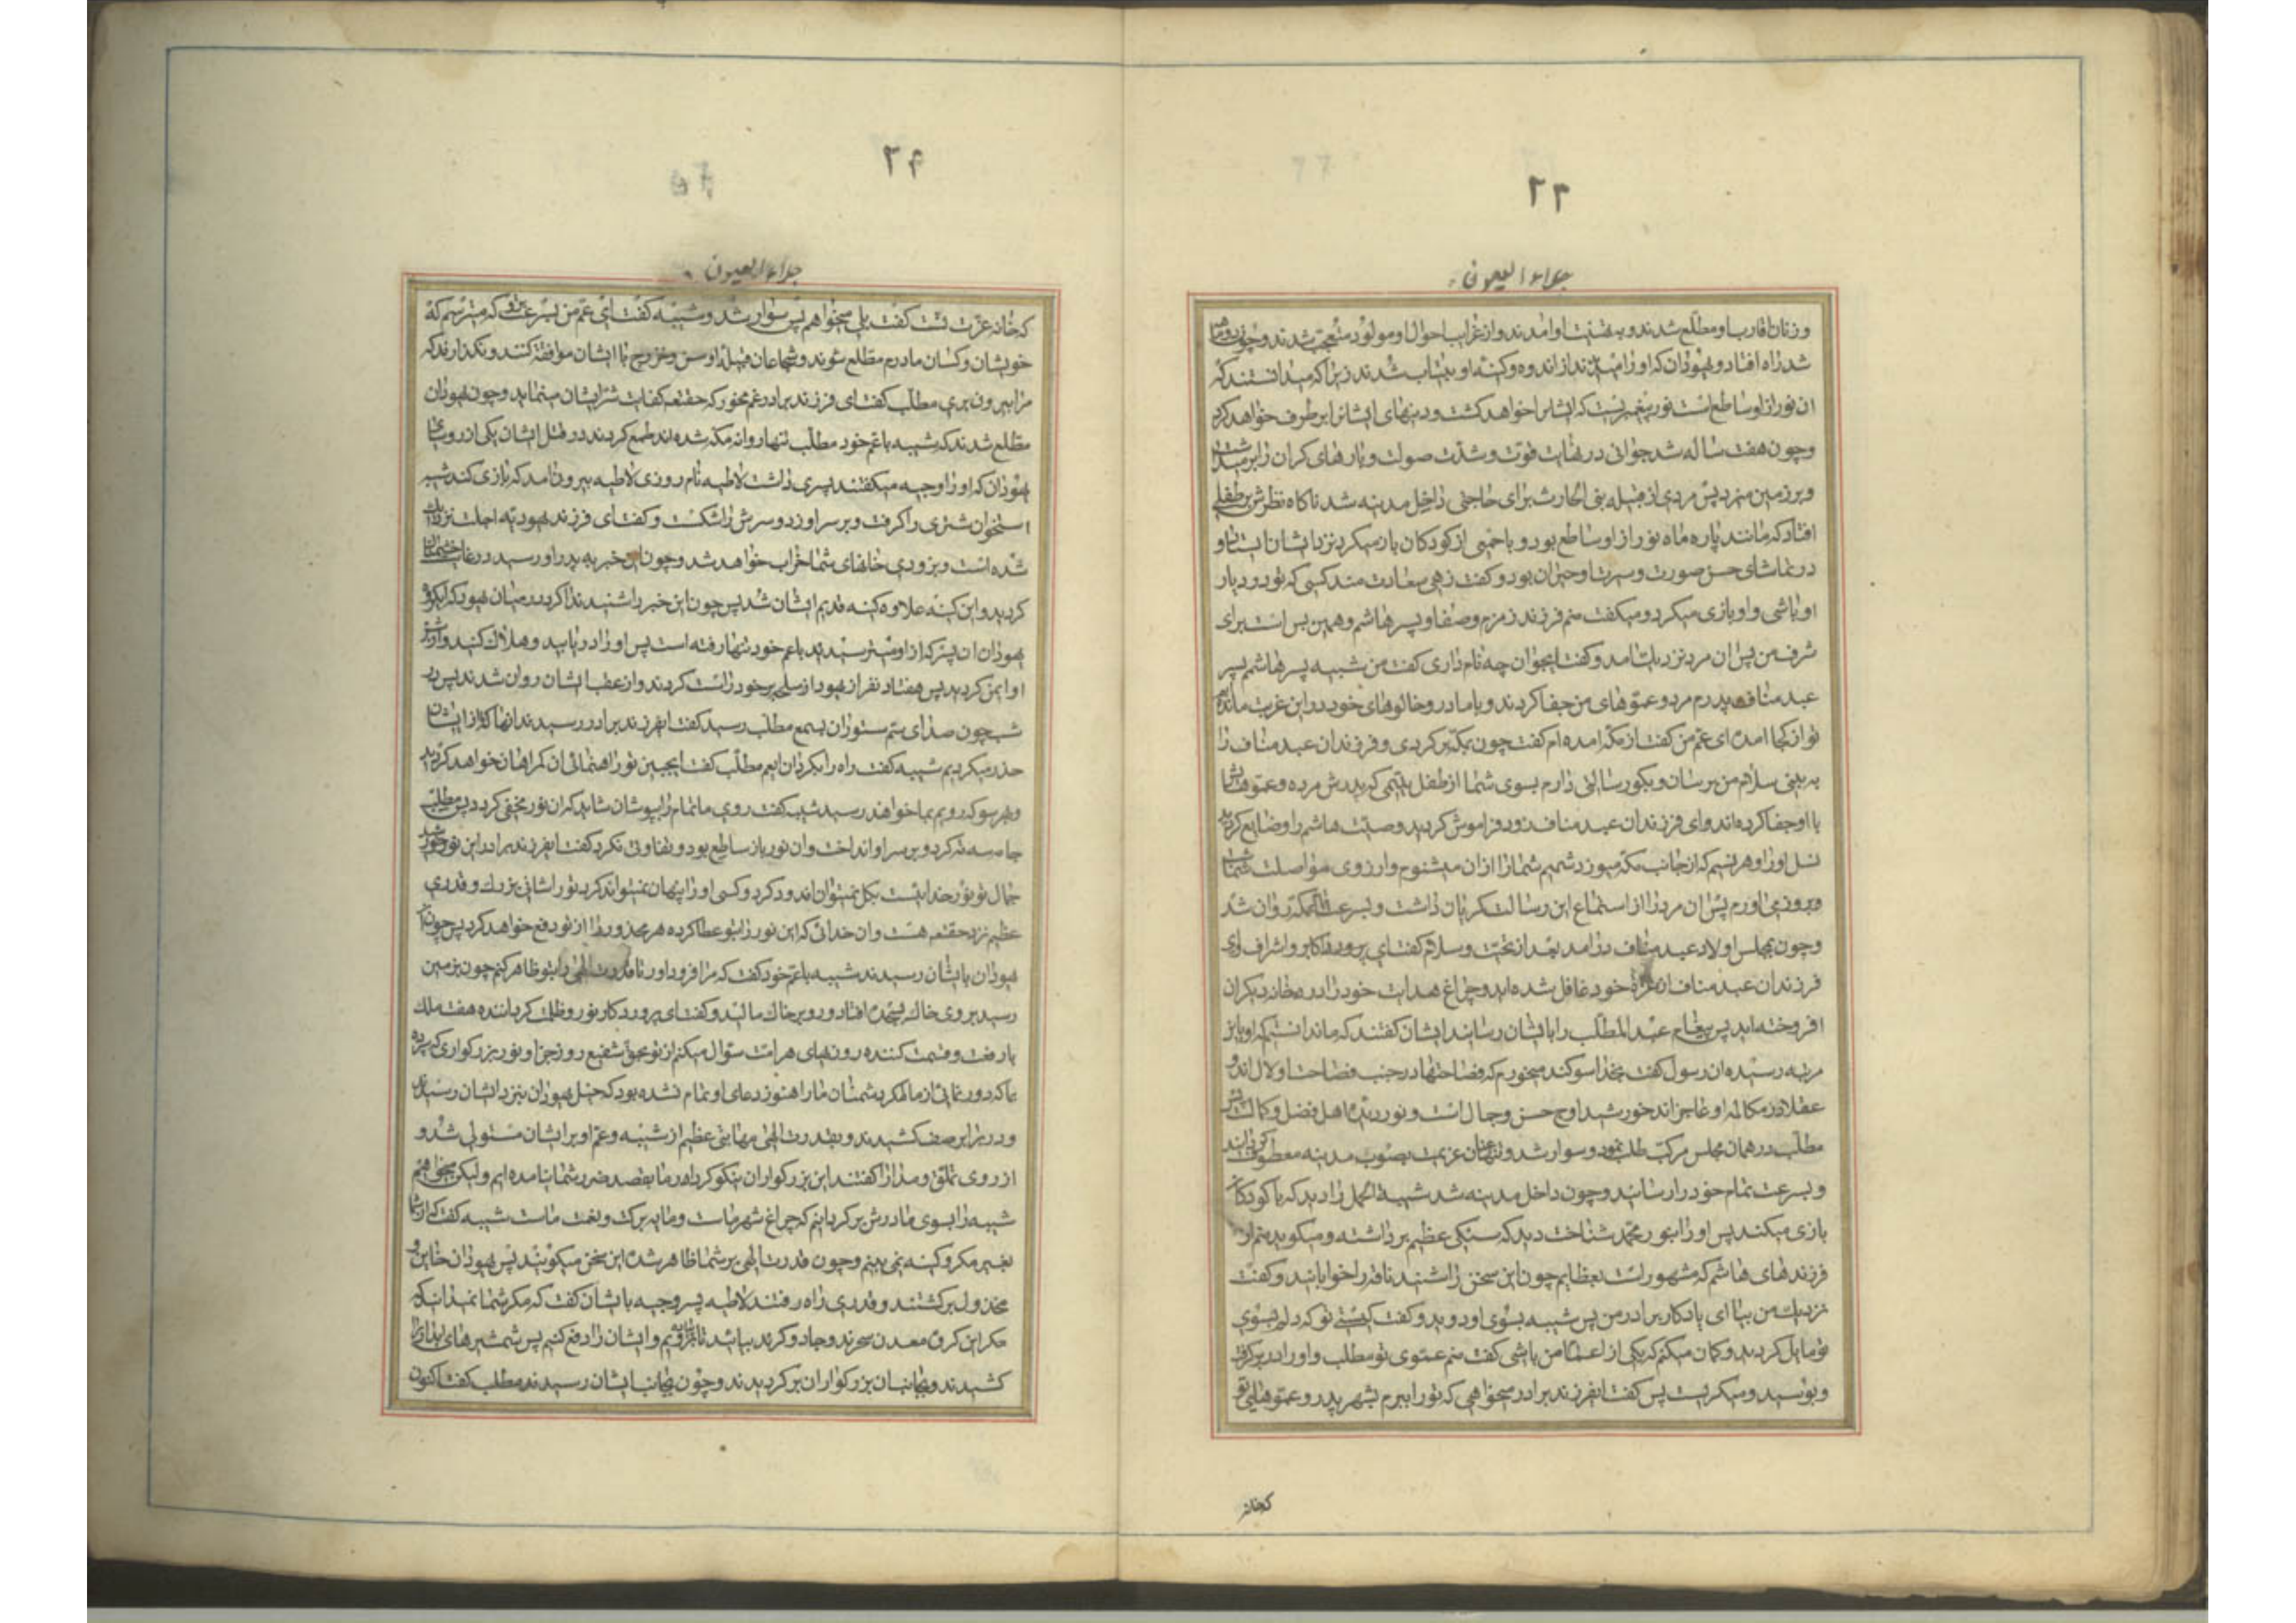 ۲۳
جلاء العیون
و زنان اقارب او مطلع شدند و به تهنیت او آمدند و از غرایب احوال او و مولود متعجب شدند و چون دو ماهه
شد راه افتاد و یهودان که او را میدیدند از اندوه و کینه او بیتاب شدند زیرا که میدانستند که
آن نور از او ساطع است نور پیغمبریست که ایشانرا خواهد کشت و دینهای ایشانرا برطرف خواهد کرد
و چون هفت ساله شد جوانی در نهایت قوت و شدت صولت و بارهای گران را بر میداشت
و بر زمین میزد پس مردی از قبیله بنی الحارث برای حاجتی داخل مدینه شد ناگاه نظرش بر طفلی
افتاد که مانند پاره ماه نور از او ساطع بود و با جمعی از کودکان بازی میکرد نزد ایشان ایستاد و
در تماشای حسن صورت و سیرت او حیران بود و گفت زهی سعادت مند کسی که تو در دیار
او باشی و او بازی میکرد و میگفت منم فرزند زمزم و صفا و پسر هاشم و همین بس است برای
شرف من پس آن مرد نزدیک آمد و گفت ایجوان چه نام داری گفت من شیبه پسر هاشم پسر
عبد مناف پدرم مرد و عموهای من جفا کردند و با مادر و خالوهای خود در این غربت مانده ام
تو از کجا آمدهٔ ای عم من گفت از مکه آمده ام گفت چون بمکه برگردی و فرزندان عبد مناف را
به بینی سلام من برسان و بگو رسالتی دارم بسوی شما از طفل یتیمی که پدرش مرده و عموهایش
با او جفا کرده اند و ای فرزندان عبد مناف زود فراموش کردید وصیت هاشم را و ضایع کردید
نسل او را و هر نسیم که از جانب مکه میوزد شمیم شما را از آن میشنوم و ارزوی مواصلت شما شب
و بروز می اورم پس آن مرد را از استماع این رسالت گریان داشت و بسرعت تمام بمکه روان شد
و چون بمجلس اولاد عبد مناف درآمد بعد از تحیت و سلام گفت ای
فرزندان عبد مناف از عزت خود غافل شده اید و چراغ هدایت خود را در خانه دیگران
افروخته اید پس پیغام عبد المطلب را بایشان رسانید ایشان گفتند که ما ندانستیم که او باین
مرتبه رسیده آن رسول گفت بخدا سوگند میخورم که فصاحتها در جنب فصاحت او لال اند و
عقلا در مکالمه او عاجز اند خورشید اوج حسن و جمال است و نور دیدهٔ اهل فضل و کمال است پس
مطلب در همان مجلس مرکب طلب نمود و سوار شد و تنها عنان عزیمت بصوب مدینه معطوف گردانید
و بسرعت تمام خود را رسانید و چون داخل مدینه شد شیبة الحمد را دید که با کودکان
بازی میکند پس او را بنور محمد شناخت دید که سنگی عظیم برداشته و میگوید منم از
فرزندهای هاشم که مشهور است بعظایم چون این سخن را شنید ناقه را خوابانید و گفت
نزدیک من بیا ای یادگار برادر من پس شیبه بسوی او دوید و گفت کیستی تو که دلم بسوی
تو مایل گردید و گمان میکنم که یکی از اعمام من باشی گفت منم عموی تو مطلب و او را در بر گرفت
و بوسید و میگریست پس گفت ایفرزند برادر میخواهی که تو را ببرم بشهر پدر و عموهای تو
که خانه
۲۴
جلاء العیون
که خانه عزت تست گفت بلی میخواهم پس سوار شد و شیبه گفت ای عم من بسرعت برو که میترسم که
خویشان و کسان مادرم مطلع شوند و شجاعان قبیله اوس و خزرج با ایشان موافقت کنند و نگذارند که
مرا بیرون بری مطلب گفت ای فرزند برادر غم مخور که حقتعالی کفایت شر ایشان مینماید و چون یهودان
مطلع شدند که شیبه با عم خود مطلب تنها روانه مکه شده اند طمع کردند در قتل ایشان یکی از رؤسای
یهودان که او را وجیه میگفتند پسری داشت لاطیه نام روزی لاطیه بیرون آمد که بازی کند شیبه
استخوان شتری را گرفت و بر سر او زد و سرش را شکست و گفت ای فرزند یهودیه اجلت نزدیک
شده است و بزودی خانهای شما خراب خواهد شد و چون این خبر به پدر او رسید در غایت خشمناک
گردید و این کینه علاوه کینه قدیم ایشان شد پس چون این خبر را شنید ندا کرد در میان یهود که ای گروه
یهودان آن پسر که از او میترسیدید با عم خود تنها رفته است پس او را دریابید و هلاک کنید و از شر
او ایمن گردید پس هفتاد نفر از یهود اسلحه بر خود راست کردند و از عقب ایشان روان شدند پس در
شب چون صدای سم ستوران بسمع مطلب رسید گفت ایفرزند برادر رسیدند آنها که از ایشان
حذر میکردیم شیبه گفت راه را بگردان ایعم مطلب گفت ایجبین تو راهنمائی آن گمراهان خواهد کرد
و بهر سو که رویم بما خواهند رسید شیبه گفت روی ما تمام را بپوشان شاید که آن نور مخفی گردد پس مطلب
جامه سه ته کرد و بر سر او انداخت و آن نور باز ساطع بود و تفاوتی نکرد گفت ایفرزند برادر این نور خورشید
جمال تو نور خداییست بگل نمیتوان اندود کرد و کسی او را پنهان نمیتواند کرد تو را شانی بزرگ و قدری
عظیم نزد حقتعالی هست و آن خدائی که این نور را بتو عطا کرده هر محذوری را از تو دفع خواهد کرد پس چون
یهودان بایشان رسیدند شیبه با عم خود گفت که مرا فرود اور تا قدرت الهی را بتو ظاهر کنم چون بزمین
رسید بروی خاک بسجده افتاد و رو بر خاک مالید و گفت ای پروردگار نور و ظلمت و گرداننده هفت فلک
با رفعت و قسمت کننده روزیهای هر امت سؤال میکنم از تو بحق شفیع روز جزا و نور بزرگواری که سپردهٔ
بما که دور نمائی از ما مکر دشمنان ما را هنوز دعای او تمام نشده بود که خیل یهودان بنزد ایشان رسیدند
و در برابر صف کشیدند و بقدرت الهی مهابتی عظیم از شیبه و عم او بر ایشان مستولی شد و
از روی تملق و مدارا گفتند این بزرگواران نیکو کردار ما بقصد ضرر شما نیامده ایم و لیکن میخواهیم
شیبه را بسوی مادرش برگردانیم که چراغ شهر ماست و مایه برکت و نعمت ماست شیبه گفت که از شما
بغیر مکر و کینه نمی بینم و چون قدرت الهی بر شما ظاهر شد این سخن میگوئید پس یهودان خایب و
مخذول برگشتند و قدری راه رفتند لاطیه پسر وجیه بایشان گفت که مگر شما نمیدانید که
مگر این گروه معدن سحرند و جادو گرند بیائید تا برگردیم و ایشان را دفع کنیم پس شمشیرهای
کشیدند و بجانب آن بزرگواران برگردیدند و چون بجانب ایشان رسیدند مطلب گفت اکنون